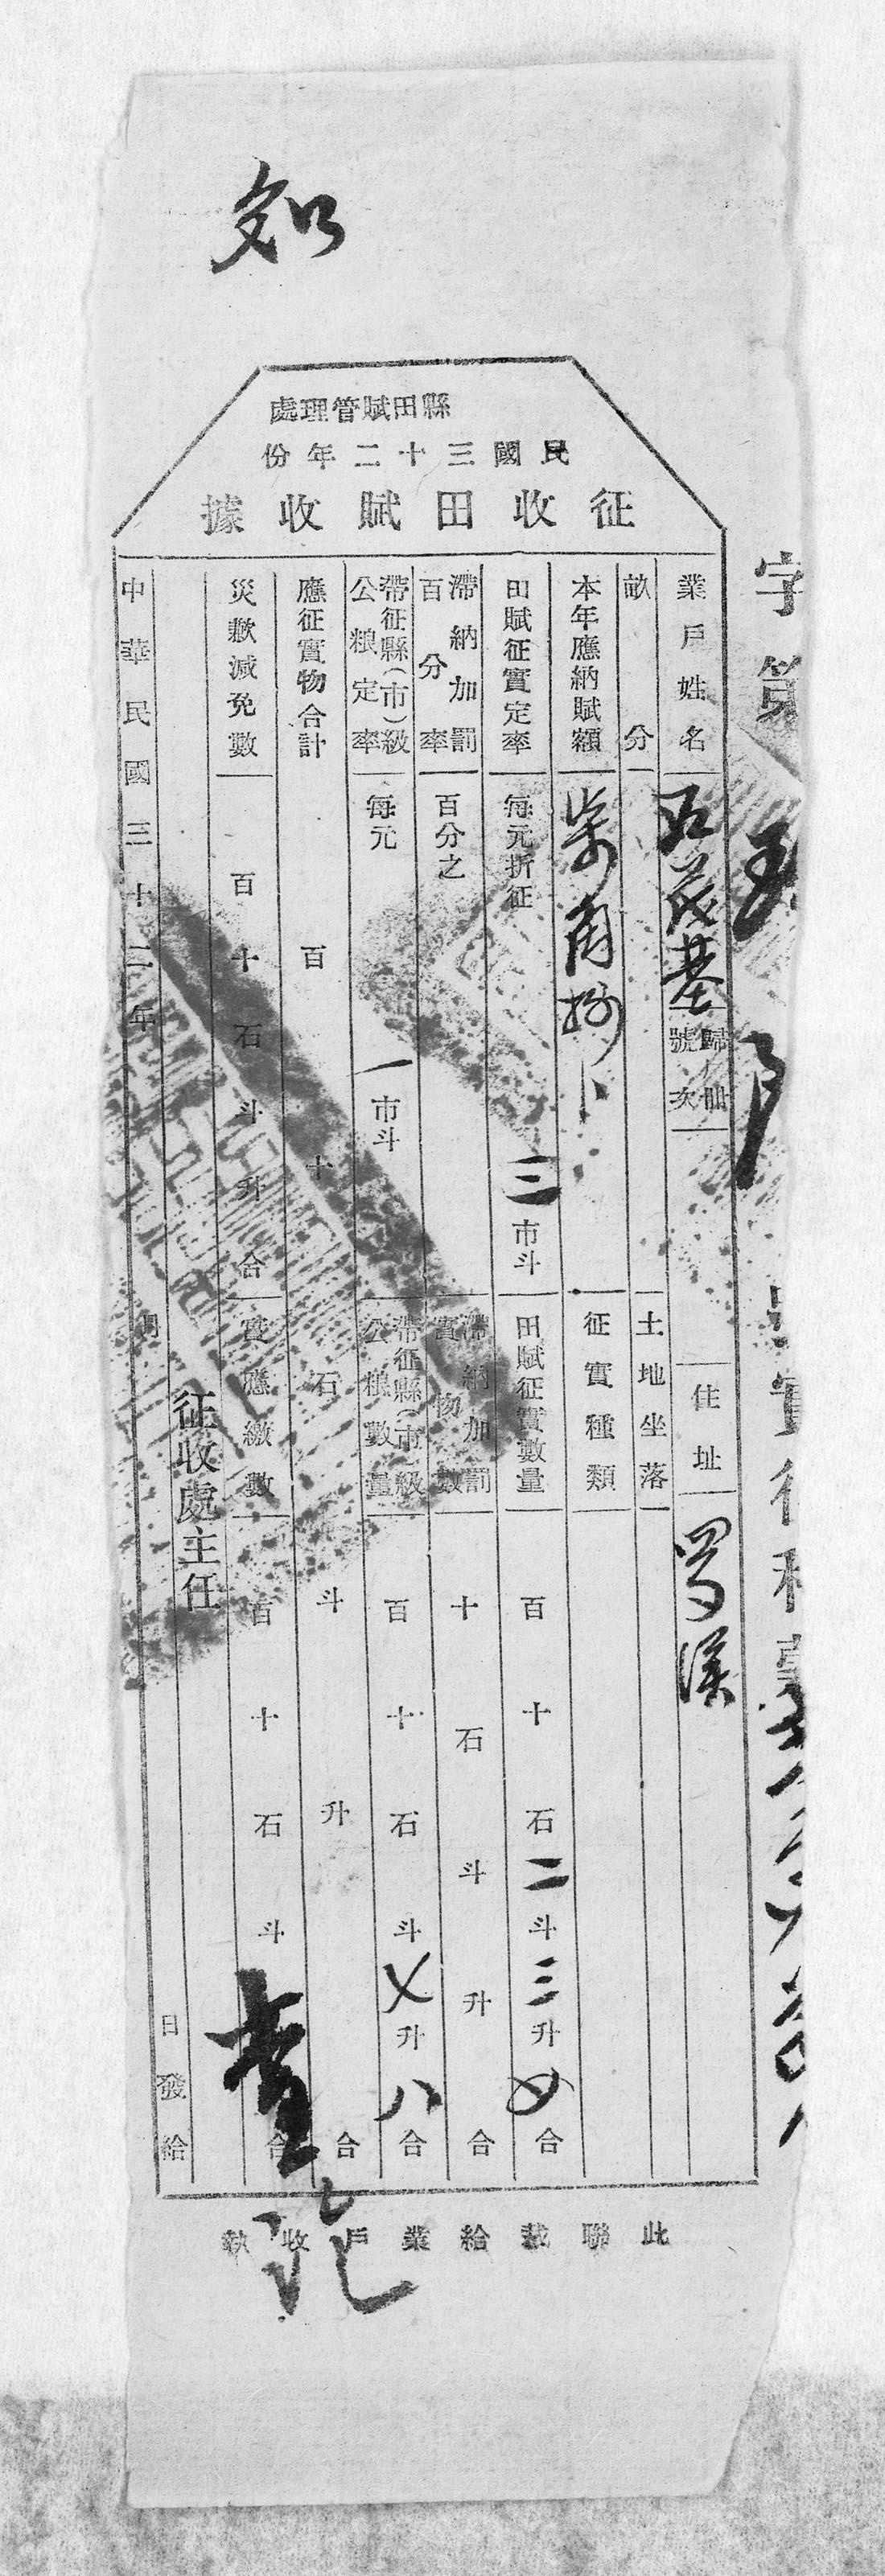 縣田賦管理處
民國三十二年份
征收田賦收據
字第
業戶姓名
茂基
歸冊號次
住址
畝分
土地坐落
本年應納賦額
柒角捌
征實種類
田賦征實定率
每元折征三市斗
田賦征實數量
百十石二斗三升〤合
滯納加罰百分率
百分之
滯納加罰實物數
十石斗升合
帶征縣(市)級公粮定率
每元一市斗
帶征縣(市)級公粮數量
百十石斗〤升八合
應征實物合計
百十石斗升合
災歉減免數
百十石斗升合
實應繳數
百十石斗
合
征收處主任
中華民國三十二年月日發給
此聯裁給業戶收執